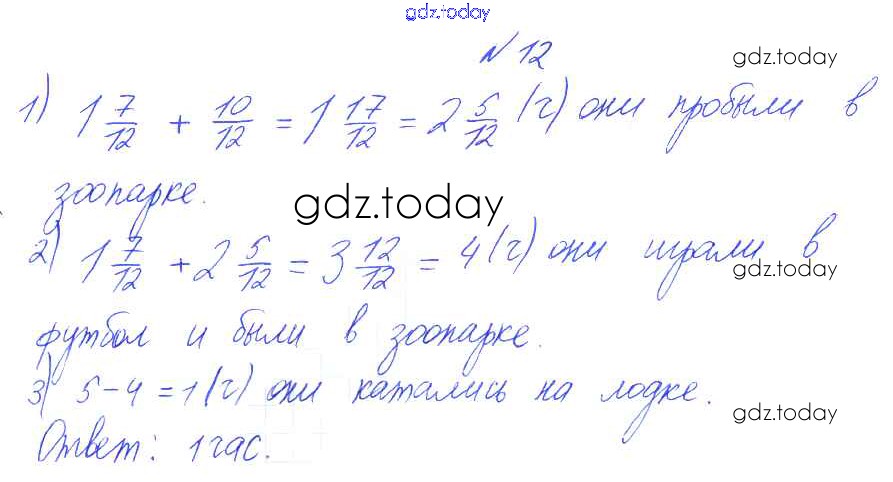 gdz.today
N 12
gdz.today
1) 1 7/12 + 10/12 = 1 17/12 = 2 5/12 (ч) они пробыли в
зоопарке.
gdz.today
2) 1 7/12 + 2 5/12 = 3 12/12 = 4 (ч) они играли в
gdz.today
футбол и были в зоопарке.
3) 5 - 4 = 1 (ч) они катались на лодке.
gdz.today
Ответ: 1 час.